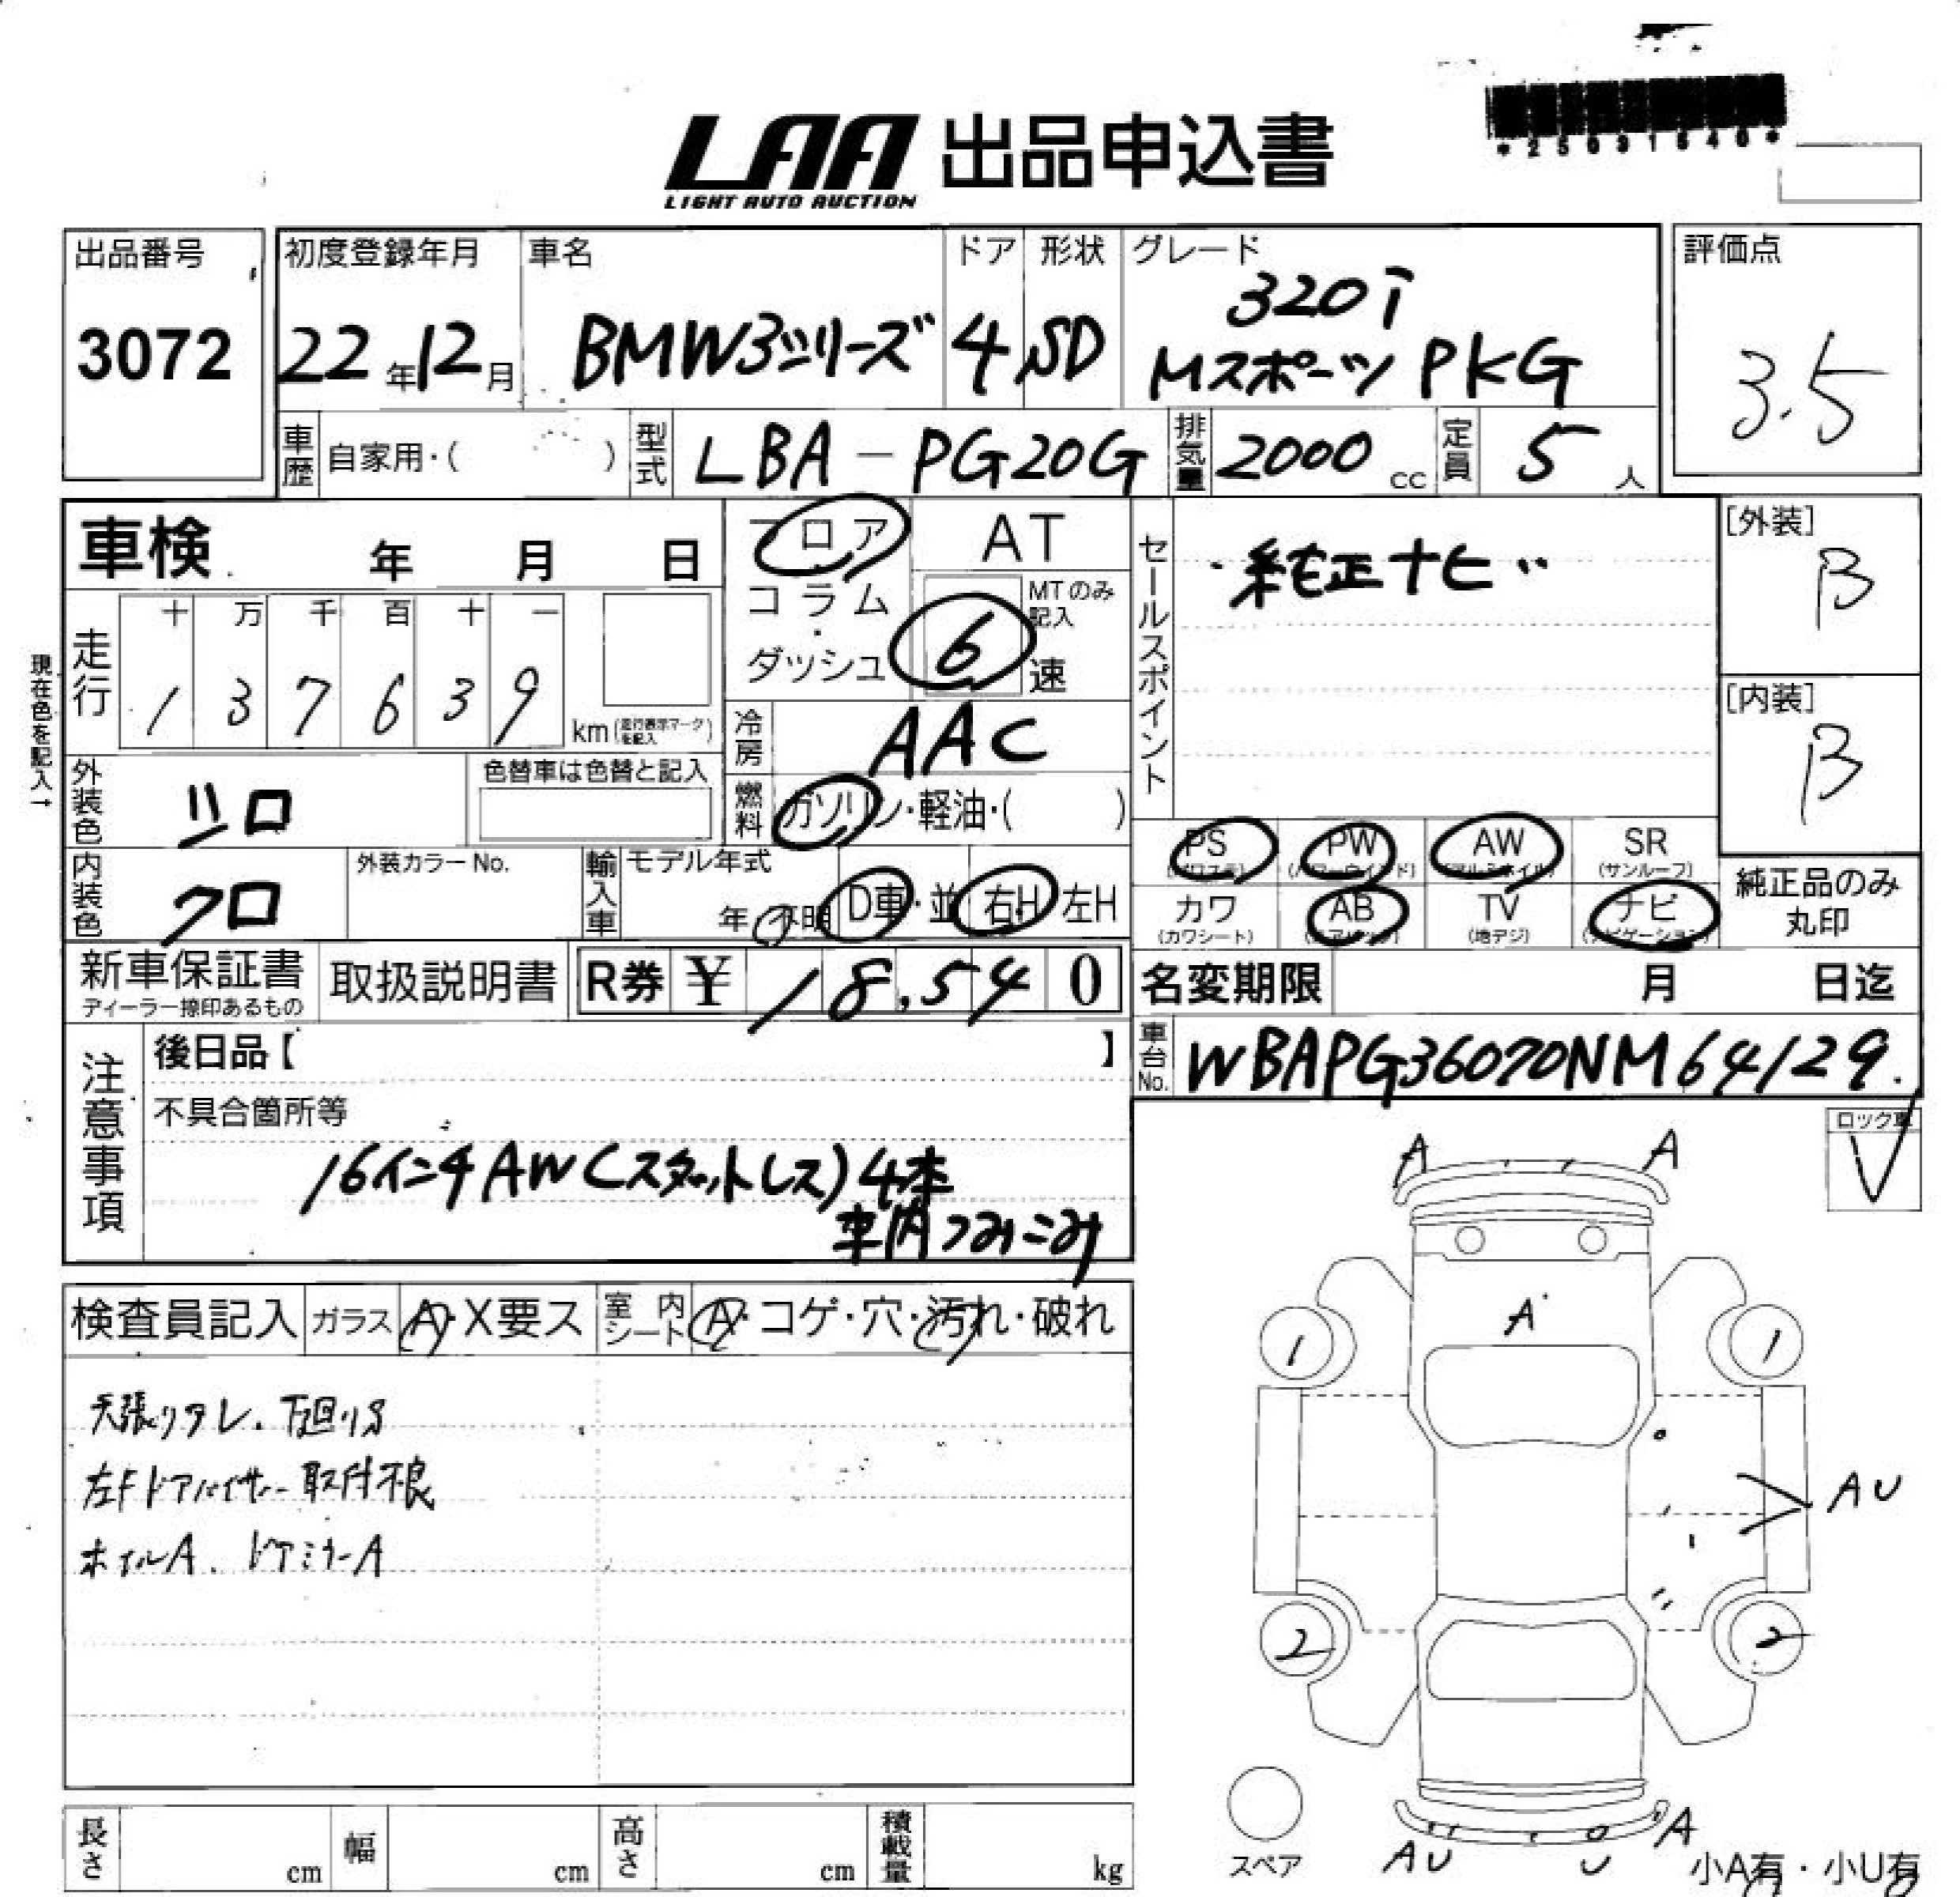 LAA 出品申込書
LIGHT AUTO AUCTION
*25031540*
出品番号
3072
初度登録年月
22年12月
車名
BMW3シリーズ
ドア
4
形状
SD
グレード
320i
Mスポーツ PKG
評価点
3.5
車歴 自家用・( )
型式 LBA-PG20G
排気量 2000 cc
定員 5 人
車検 年 月 日
フロア
コラム
・
ダッシュ
AT
MTのみ
記入
6 速
セールスポイント
・純正ナビ
[外装]
B
[内装]
B
現在色を記入→
走行
十 万 千 百 十 一
1 3 7 6 3 9
km(走行表示マークを記入)
冷房 AAC
外装色 シロ
色替車は色替と記入
燃料 ガソリン・軽油・( )
内装色 クロ
外装カラーNo.
輸入車 モデル年式
年・不明
D車・並
右H 左H
PS (パワステ)
PW (パワーウインド)
AW (アルミホイル)
SR (サンルーフ)
カワ (カワシート)
AB (エアバッグ)
TV (地デジ)
ナビ (ナビゲーション)
純正品のみ
丸印
新車保証書
ディーラー捺印あるもの
取扱説明書
R券 ¥ 18,540
名変期限 月 日迄
車台No. WBAPG36070NM64129.
注意事項
後日品【 】
不具合箇所等
16インチAW(スタットレス)4本
車内つみこみ
ロック車
V
検査員記入
ガラス A・X要ス
室内シート A・コゲ・穴・汚れ・破れ
天張りタレ、下回りS
左Fドアバイザー取付不良
ホイルA、ドアミラーA
A A
A
1 1
AU
2 2
A
AU U
スペア
小A有・小U有
長さ cm
幅 cm
高さ cm
積載量 kg